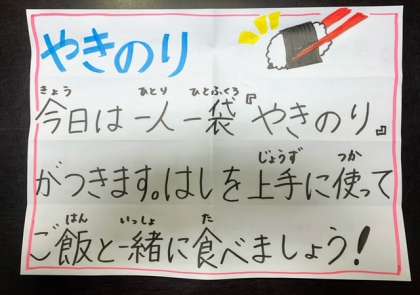 やきのり
きょう ひとり ひとふくろ
今日は一人一袋『やきのり』
じょうず つか
がつきます。はしを上手に使って
はん いっしょ た
ご飯と一緒に食べましょう！